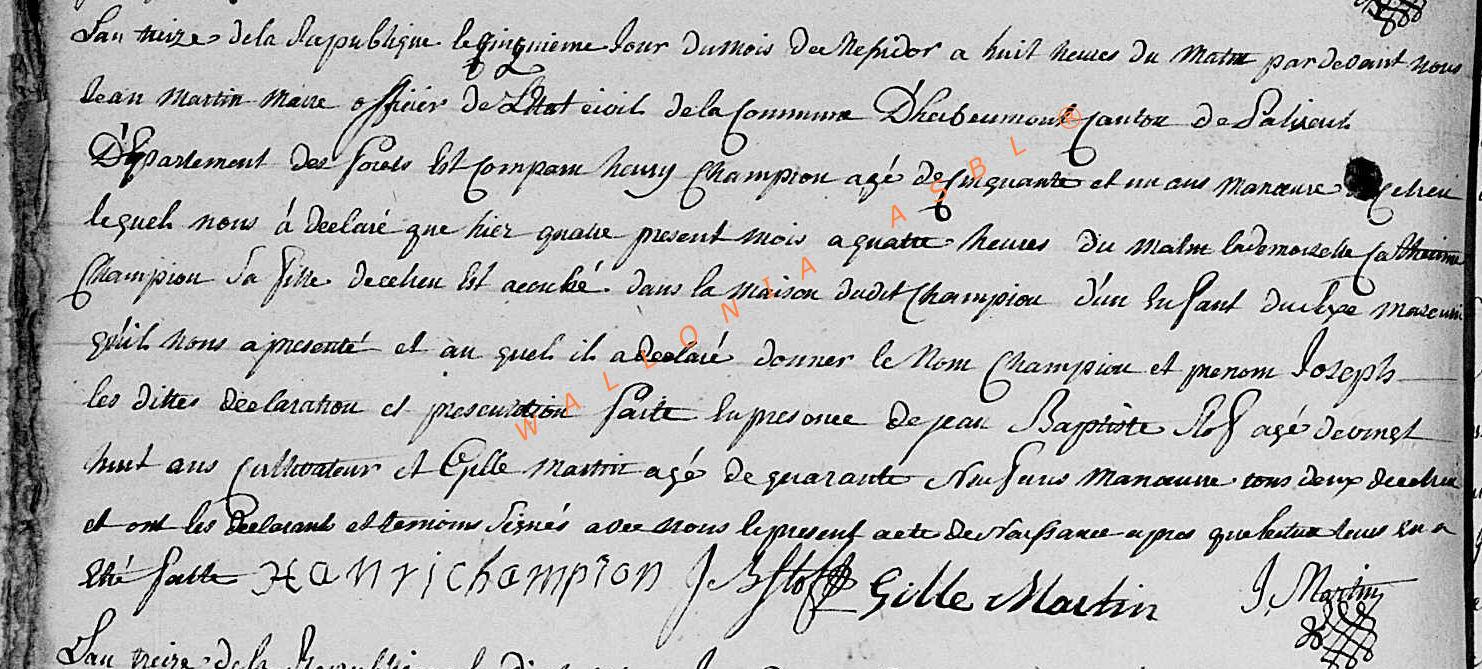 L'an treize de la Republique le cinquieme Jour du mois de Messidor a huit heures du Matin par devant nous
Jean Martin Maire officier de L'Etat civil de la Commune D'herbeumont Canton de Paliseul
Département des forets Est Comparu henry Champion agé de Cinquante et un ans Manœuvre de celieu
lequel nous á declaré que hier quatre present mois a quatre heures du matin la demoiselle Catherine
Champion sa fille de celieu Est accouhé dans la Maison dudit Champion d'un Enfant du sexe masculin
qu'il nous a presenté et au quel il a declaré donner le Nom Champion et prenom Joseph
les dittes déclaration et presentation faite En presence de jean Baptiste Stof agé de vingt
huit ans Cultivateur et Gille Martin agé de quarante Neuf ans Manœuvre tous deux de celieu
et ont les declarant et temoins signés avec nous le present acte de Naissance apres que lecture leurs En a
Eté faitte Hanri champion J B Stof Gille Martin J, Martin
L'an treize de la Republique le
WALLONIA ASBL ®